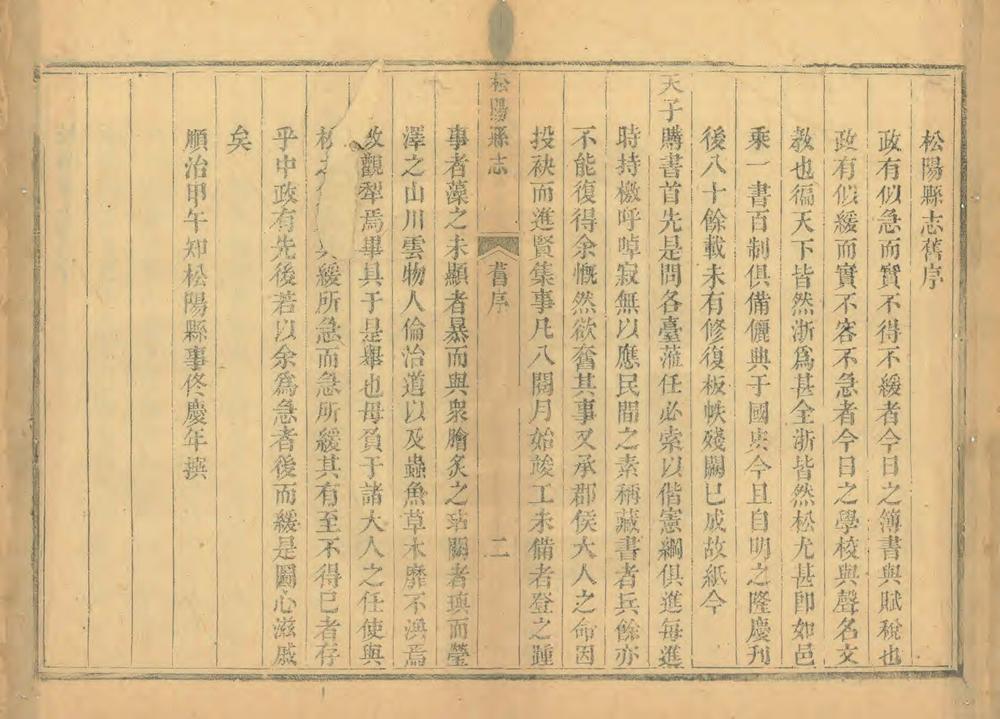 松陽縣志舊序
政有似急而實不得不緩者今日之簿書與賦稅也
政有似緩而實不容不急者今日之學校與聲名文
教也徧天下皆然浙爲甚全浙皆然松尤甚卽如邑
乘一書百制俱備儷典于國史今且自明之隆慶刊
後八十餘載未有修復板帙殘闕已成故紙今
天子購書首先是問各臺蒞任必索以偕憲綱俱進每進
時持檄呼啅寂無以應民間之素稱藏書者兵餘亦
不能復得余慨然欲奮其事又承郡侯大人之命因
投袂而進賢集事凡八閱月始竣工未備者登之踵
松陽縣志
舊序
二
事者藻之未顯者暴而與衆膾炙之玷闕者琪而瑩
澤之山川雲物人倫治道以及蟲魚草木靡不渙焉
改觀犁焉畢具于是舉也毋負于諸大人之任使與
緩所急而急所緩其有至不得已者存
乎中政有先後若以余爲急者後而緩是圖心滋戚
矣
順治甲午知松陽縣事佟慶年撰